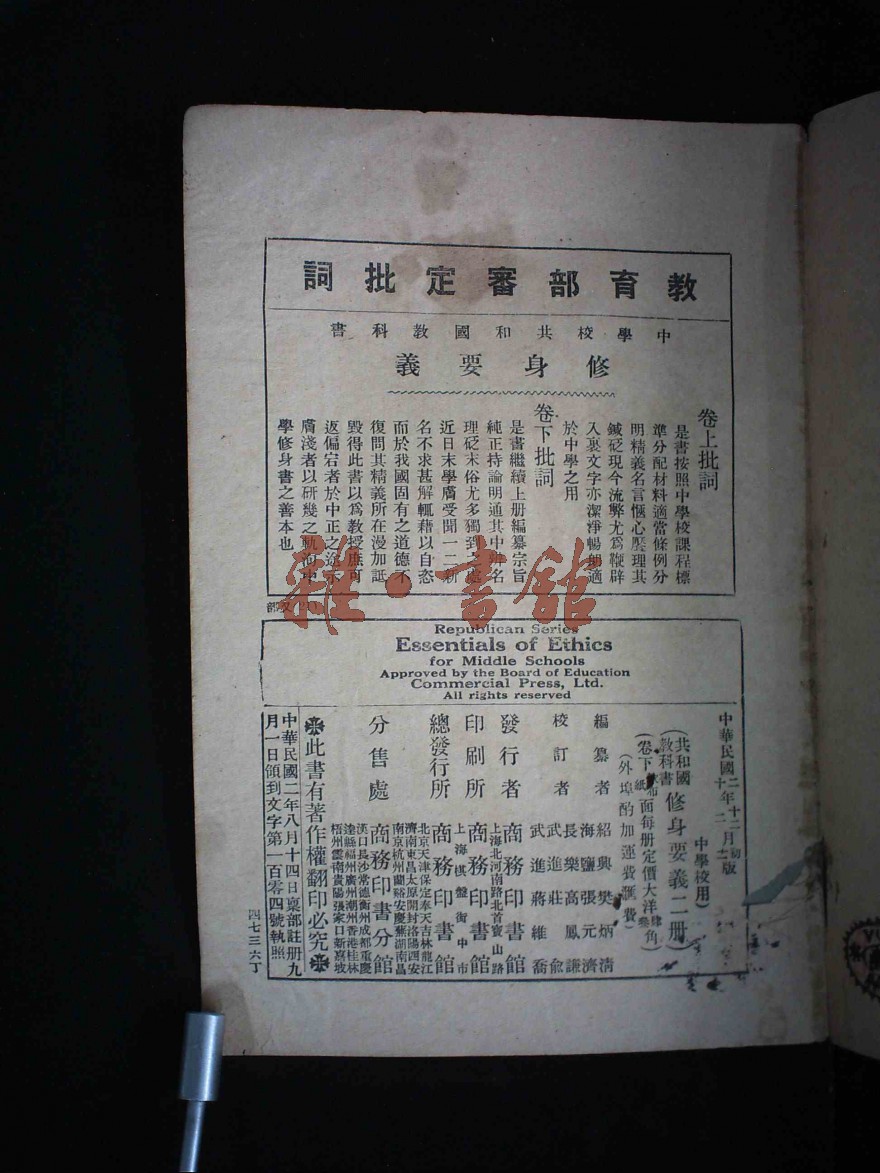 教育部審定批詞
中學校共和國教科書
修身要義
卷上批詞
是書按照中學校課程標
準分配材料適當條例分
明精義名言愜心壓理其
鍼砭現今流弊尤爲鞭辟
入裏文字亦潔淨暢朗適
於中學之用
卷下批詞
是書繼續上册編纂宗旨
純正持論明通其中辨名
理砭末俗尤多獨到之處
近日末學膚受聞一二新
名不求甚解輒藉以自恣
而於我國固有之道德不
復問其精義所在漫加詆
毀得此書以爲教授庶可
返偏宕者於中正之途示
膚淺者以研幾之軌洵中
學修身書之善本也
雜·書館
Republican Series
Essentials of Ethics
for Middle Schools
Approved by the Board of Education
Commercial Press, Ltd.
All rights reserved
中華民國二年十二月初版
中學校用)
(共和國教科書修身要義二册
(卷下紙布面每册定價大洋 角
(外埠酌加運費匯費)
編纂者 紹興樊炳清
校訂者 海鹽張元濟
長樂高鳳謙
武進莊俞
武進蔣維喬
發行者 商務印書館
印刷所 上海北河南路北首寶山路
商務印書館
總發行所 上海棋盤街中市
商務印書館
分售處 北京天津保定奉天吉林龍江
濟南東昌太原開封洛陽西安
南京杭州蘭谿安慶蕪湖南昌
商務印書分館
漢口長沙常德衡州成都重慶
達縣福州廣州潮州香港桂林
梧州雲南貴陽張家口新嘉坡
此書有著作權翻印必究
中華民國二年八月十四日稟部註册九
月一日領到文字第一百零四號執照
四七三六丁